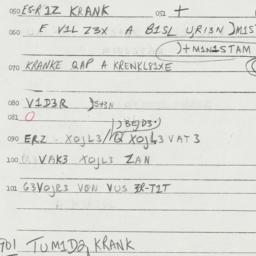 050 ESR1Z KRANK 051 +
060 E V1L Z3X A B1SL
)+M1N1STAM
070 KRANKE QAP A KRENKL81XE
080 V1D3R )S+3N
081
090 ERZ XOJL3 XOJL3 VAT3
100 VAK3 XOJL3 ZAN
101 G3VOJR3 VON VUS 3R-T1T
901 TUM1D3 KRANK